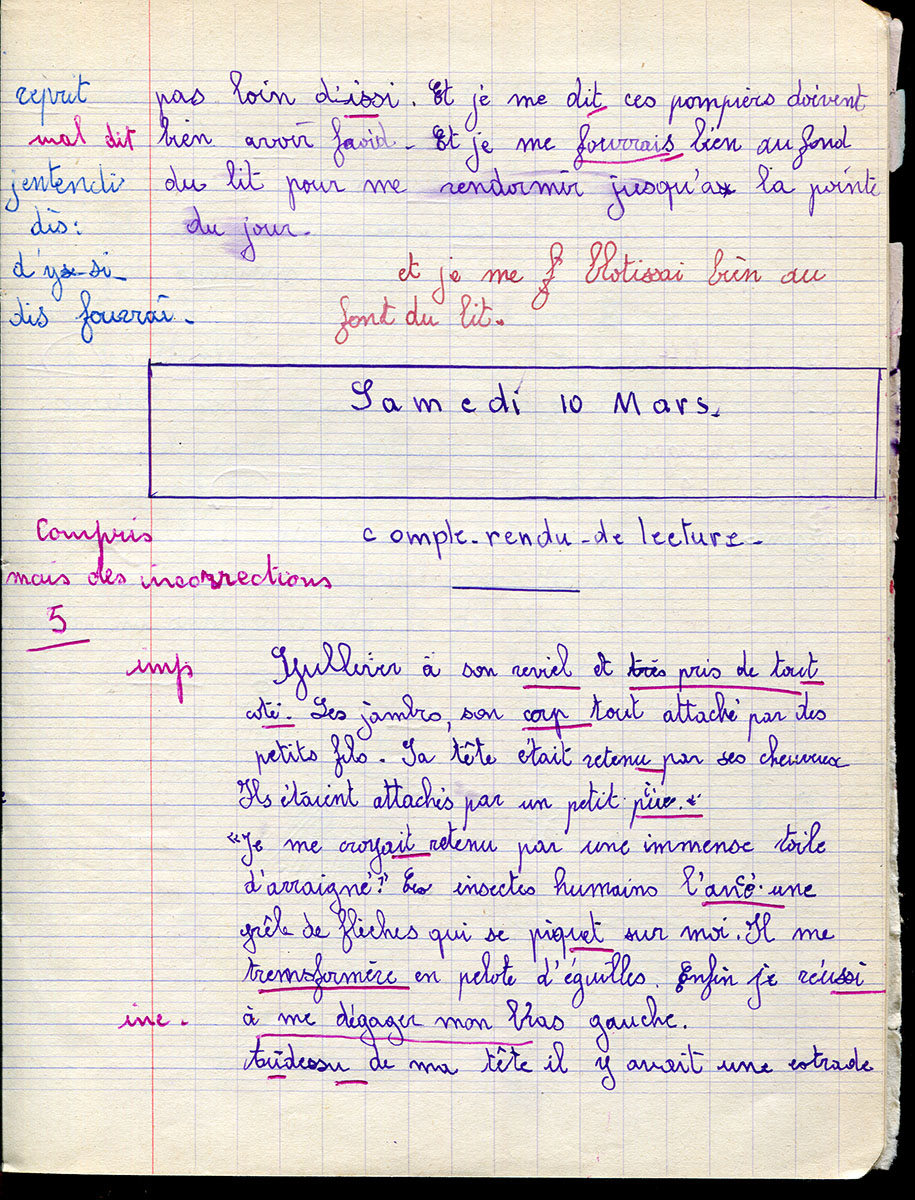 reprit pas loin d'issi. Et je me dit, ces pompiers doivent
mal dit bien avoir froid. Et je me fourrais bien au fond
jentendi du lit pour me rendormir jusqu'a la pointe
dis: du jour.
d'y-si- et je me blotissai bien au
dis fourrai. font du lit.
Samedi 10 Mars.
Compris compte-rendu-de lecture-
mais des incorrections
5
imp Gulliver à son reviel et très pris de tout
coté. Ses jambes, son corp tout attaché par des
petits fils. Sa tête était retenu par ses cheuveux
Ils étaient attachés par un petit
"Je me croyait retenu par une immense toile
d'arraigné" insectes humains l'ancé une
grêle de flèches qui se piquet sur moi. Il me
transformère en pelote d'éguilles. Enfin je réussi
inc. à me dégager mon bras gauche.
audessu de ma tête il y avait une estrade